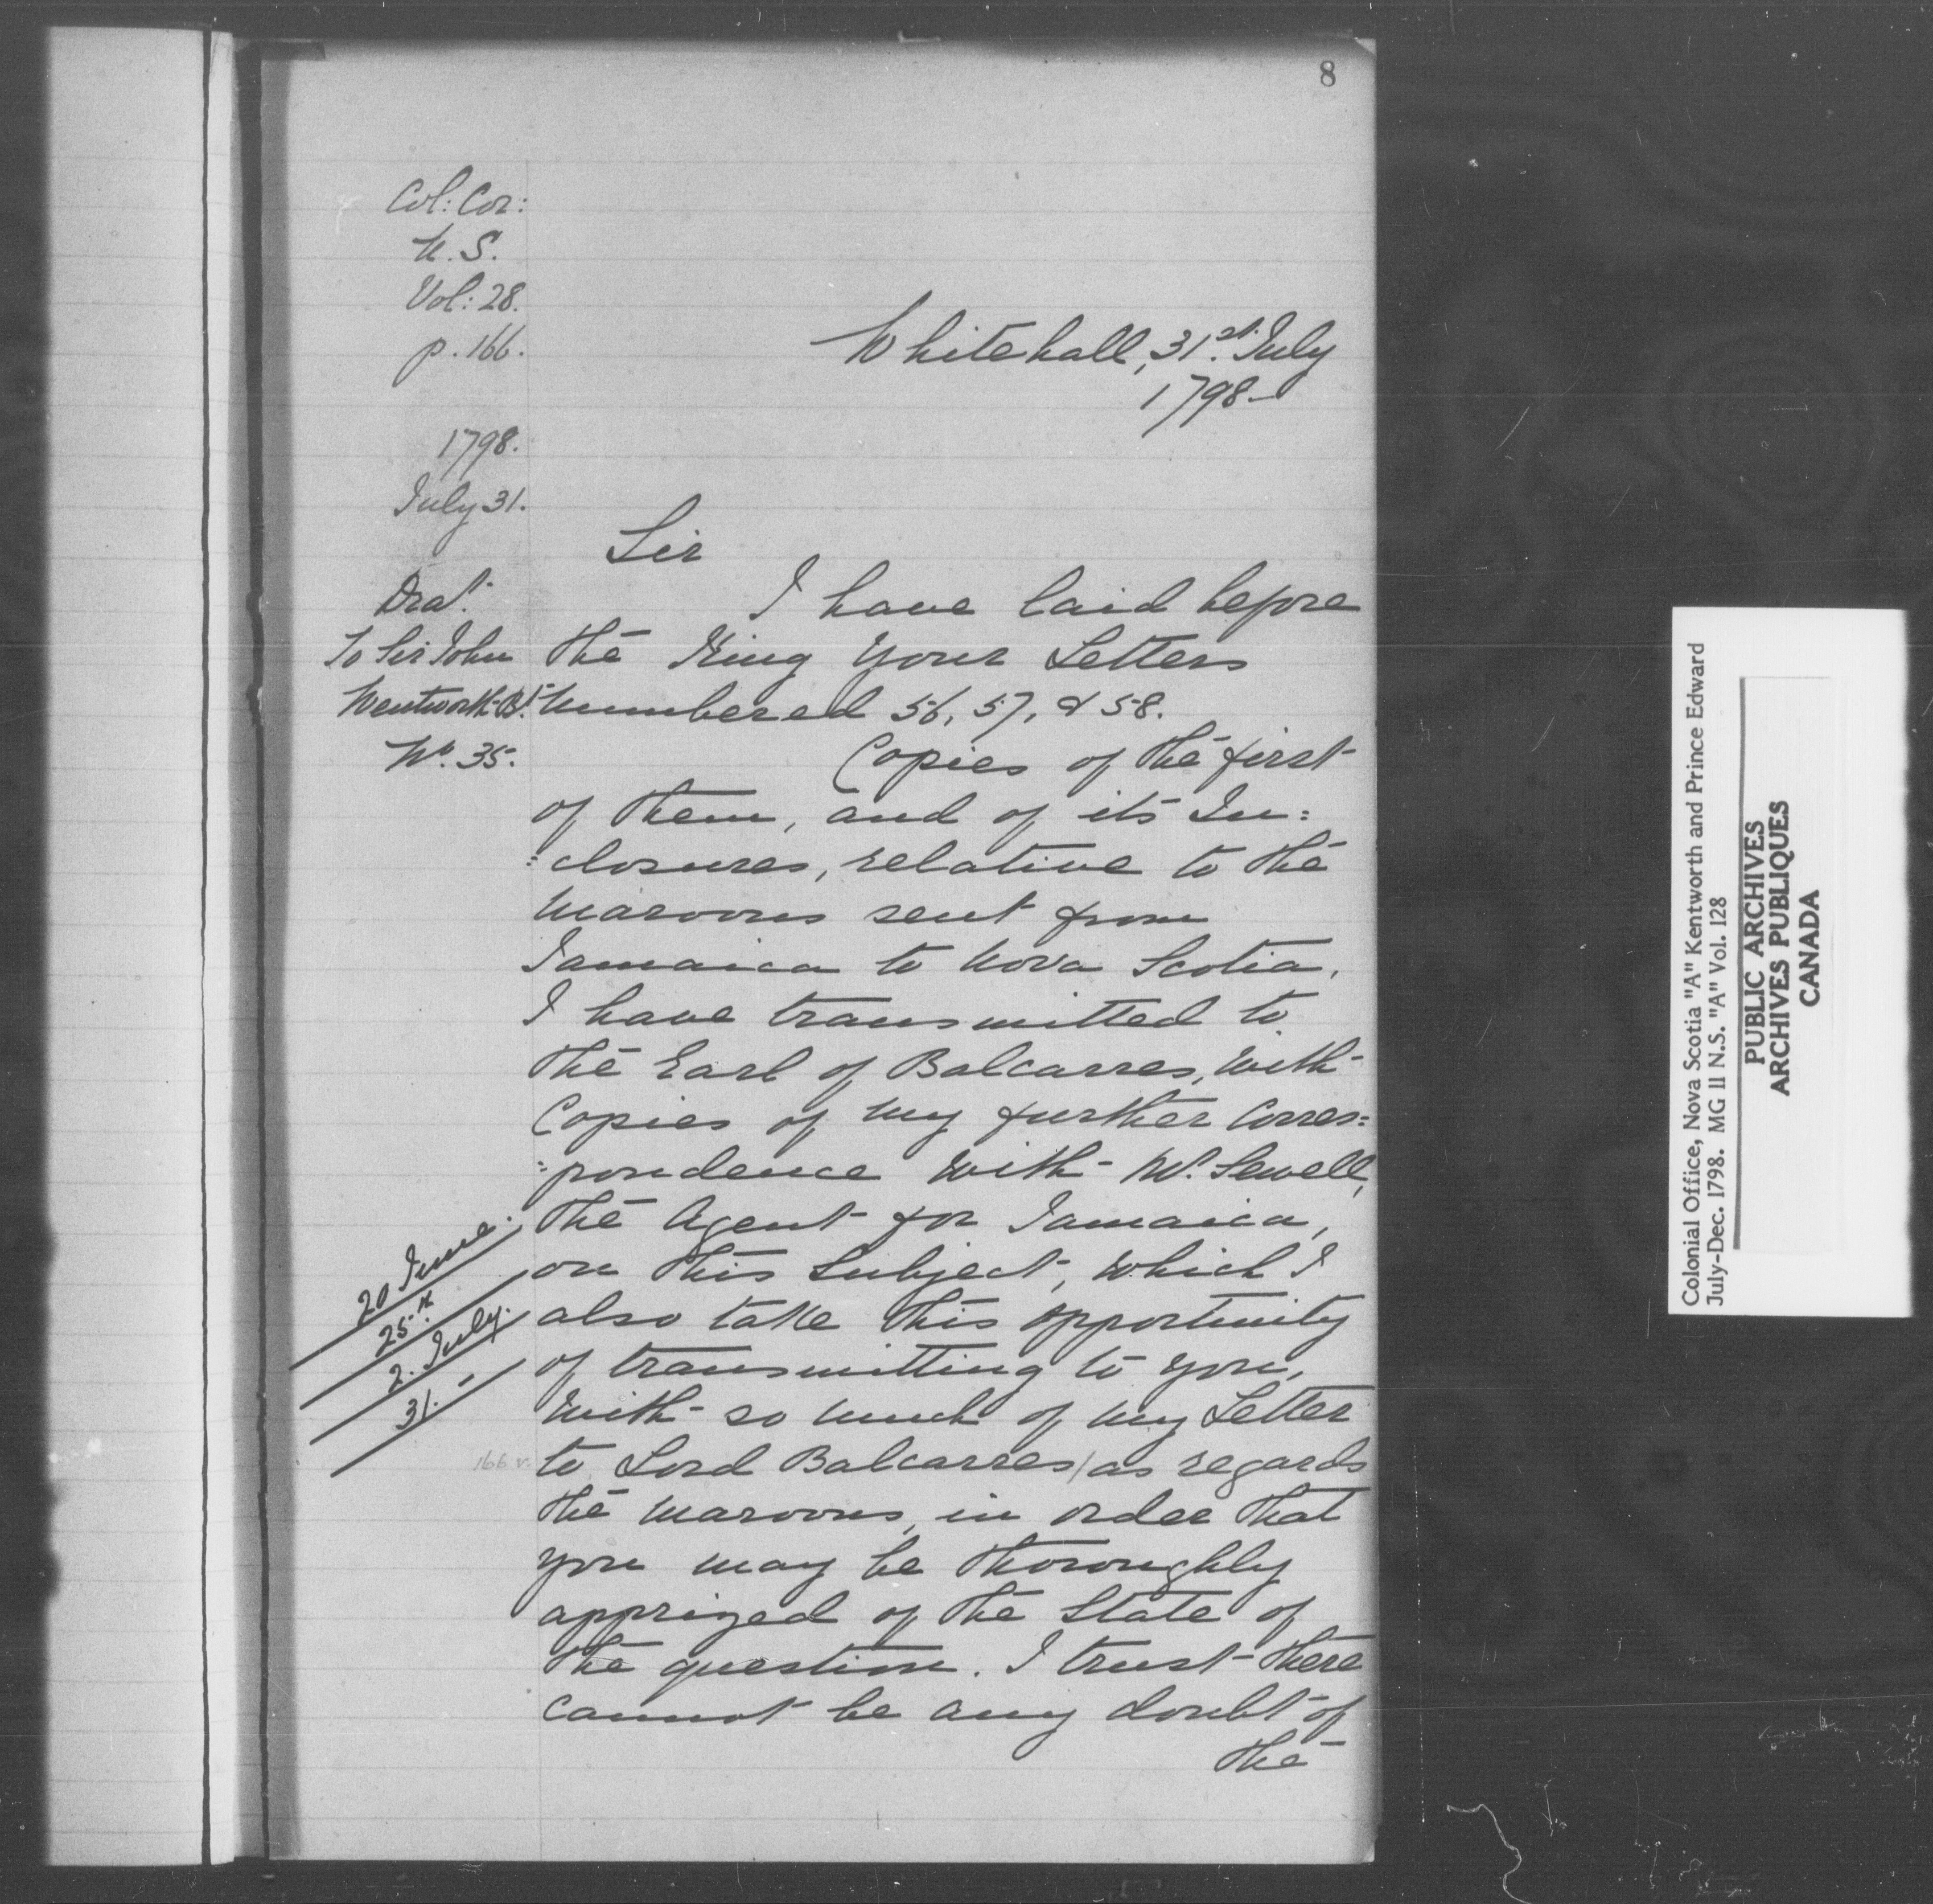 8
Col: Cor:
N. S.
Vol: 28.
p. 166.
Whitehall, 31st. July
1798-
1798.
July 31.
Sir
Dra't.
To Sir John
Wentworth Bt.
No. 35.
I have laid before
the King your Letters
numbered 56, 57, & 58.
Copies of the first
of them, and of its In:
:closures, relative to the
Maroons sent from
Jamaica to Nova Scotia,
I have transmitted to
the Earl of Balcarres, with
Copies of my further Corres:
:pondence with Mr. Sewell,
the Agent for Jamaica,
on this Subject, which I
also take this opportunity
of transmitting to you,
with so much of my Letter
to Lord Balcarres/as regards
the Maroons, in order that
you may be thoroughly
apprized of the State of
the question. I trust there
cannot be any doubt of
the
20 June.
25th
2. July.
31. -
166 v.
Colonial Office, Nova Scotia "A" Kentworth and Prince Edward
July-Dec. 1798. MG 11 N.S. "A" Vol. 128
PUBLIC ARCHIVES
ARCHIVES PUBLIQUES
CANADA